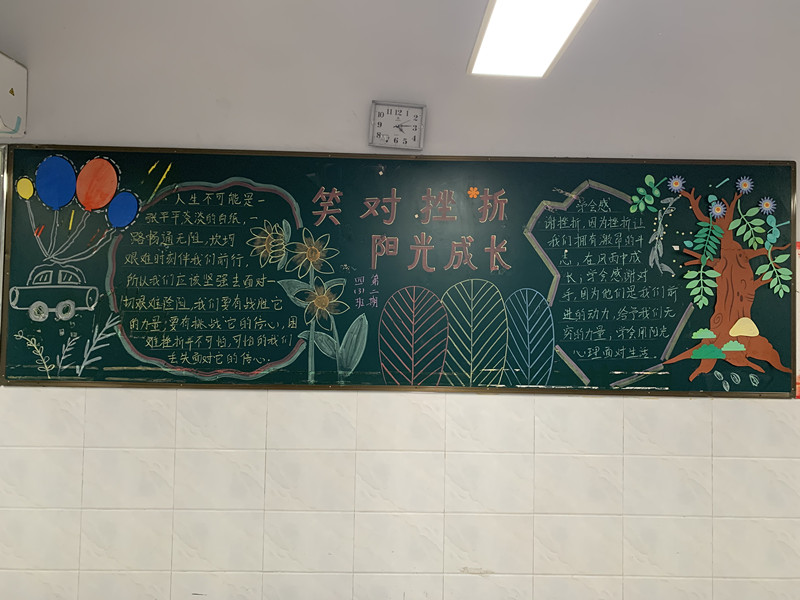 笑对挫折
阳光成长
第二期
四(3)班
人生不可能是一
张平平淡淡的白纸,一
路畅通无阻,坎坷
艰难时刻伴我们前行,
所以我们应该坚强去面对一
切艰难险阻,我们要有战胜它
的力量,要有挑战它的信心,困
难挫折并不可怕,可怕的我们
丢失面对它的信心.
学会感
谢挫折,因为挫折让
我们拥有激昂的斗
志,在风雨中成
长,学会感谢对
手,因为他们是我们前
进的动力,给予我们无
穷的力量,学会用阳光
心理面对生活.
12
1
2
3
4
5
6
8
9
10
11